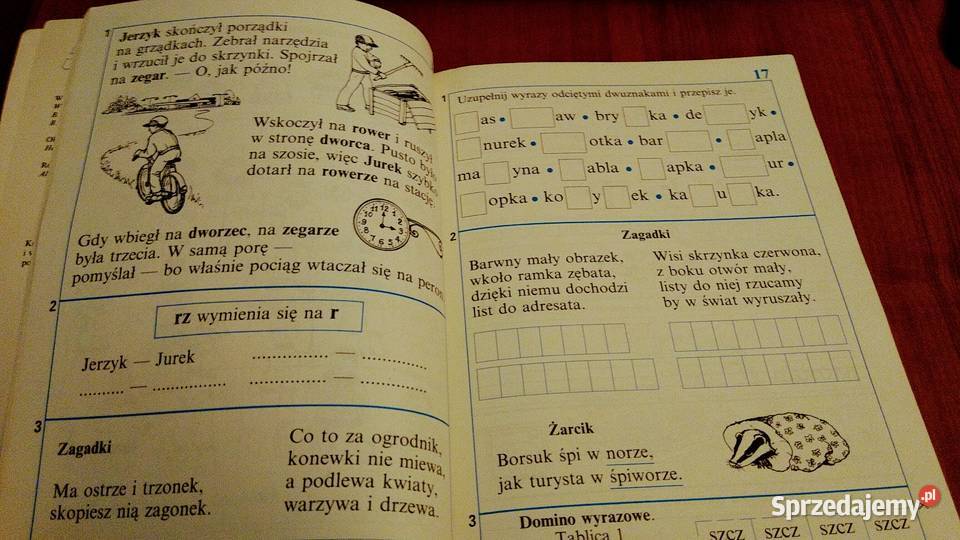 1
Jerzyk skończył porządki
na grządkach. Zebrał narzędzia
i wrzucił je do skrzynki. Spojrzał
na zegar. — O, jak późno!
Wskoczył na rower i ruszył
w stronę dworca. Pusto było
na szosie, więc Jurek szybko
dotarł na rowerze na stację.
Gdy wbiegł na dworzec, na zegarze
była trzecia. W samą porę —
pomyślał — bo właśnie pociąg wtaczał się na peron
2
rz wymienia się na r
Jerzyk — Jurek ............... — .............
.......... — ................ ............... — .............
3
Zagadki
Ma ostrze i trzonek,
skopiesz nią zagonek.
Co to za ogrodnik,
konewki nie miewa,
a podlewa kwiaty,
warzywa i drzewa.
17
1
Uzupełnij wyrazy odciętymi dwuznakami i przepisz je.
as • aw • bry ka • de yk •
nurek • otka • bar • apla
ma yna • abla • apka • ur •
opka • ko y ek • ka u ka.
2
Zagadki
Barwny mały obrazek,
wkoło ramka zębata,
dzięki niemu dochodzi
list do adresata.
Wisi skrzynka czerwona,
z boku otwór mały,
listy do niej rzucamy
by w świat wyruszały.
Żarcik
Borsuk śpi w norze,
jak turysta w śpiworze.
3
Domino wyrazowe.
Tablica 1
szcz szcz szcz szcz
Sprzedajemy.pl